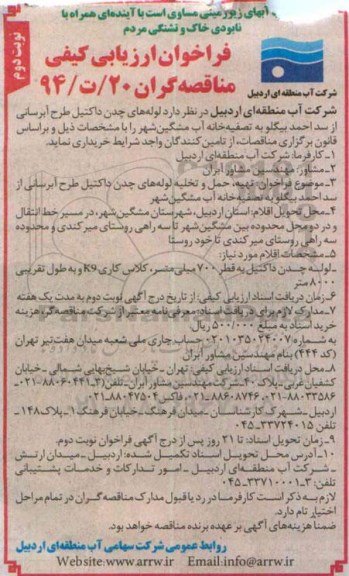 آبهای زیرزمینی مساوی است با آینده‌ای همراه با
نابودی خاک و تشنگی مردم
نوبت دوم
فراخوان ارزیابی کیفی
مناقصه‌گران ۲۰/ت/۹۴
شرکت آب منطقه‌ای اردبیل
شرکت آب منطقه‌ای اردبیل در نظر دارد لوله‌های چدن داکتیل طرح آبرسانی
از سد احمد بیگلو به تصفیه‌خانه آب مشگین‌شهر را با مشخصات ذیل و براساس
قانون برگزاری مناقصات، از تامین کنندگان واجد شرایط خریداری نماید.
۱ـ کارفرما: شرکت آب منطقه‌ای اردبیل
۲ـ مشاور: مهندسین مشاور ایران
۳ـ موضوع فراخوان: تهیه، حمل و تخلیه لوله‌های چدن داکتیل طرح آبرسانی از
سد احمد بیگلو به تصفیه‌خانه آب مشگین‌شهر
۴ـ محل تحویل اقلام: استان اردبیل، شهرستان مشگین‌شهر، در مسیر خط انتقال
و در دو محل محدوده بین مشگین‌شهر تا سه راهی روستای میر کندی و محدوده
سه راهی روستای میر کندی تا خود روستا
۵ـ مشخصات اقلام مورد نیاز:
ـ لوله چدن داکتیل به قطر ۷۰۰ میلی‌متر، کلاس کاری K9 و به طول تقریبی
۸۰۰۰ متر
۶ـ زمان دریافت اسناد ارزیابی کیفی: از تاریخ درج آگهی نوبت دوم به مدت یک هفته
۷ـ مدارک لازم برای دریافت اسناد: معرفی‌نامه معتبر از شرکت مناقصه‌گر، هزینه
خرید اسناد به مبلغ ۵۰۰/۰۰۰ ریال
به شماره ۰۲۰۱۰۳۵۰۲۴۰۰۷ حساب جاری ملی شعبه میدان هفت‌تیر تهران
(کد ۴۴۴) بنام مهندسین مشاور ایران
۸ـ محل دریافت اسناد ارزیابی کیفی: تهران ـ خیابان شیخ‌بهایی شمالی ـ خیابان
کشفیان غربی ـ پلاک ۴۰ ـ شرکت مهندسین مشاور ایران ـ تلفن: (۳ـ۸۸۰۶۰۴۴۱ـ۰۲۱
۸۸۰۳۳۵۸۶ـ۰۲۱، ۸۸۶۰۸۷۴۶ـ۰۲۱، فاکس ۸۸۰۴۷۵۰۴ـ۰۲۱)
اردبیل ـ شهرک کارشناسان ـ میدان فرهنگ ـ خیابان فرهنگ ۱ ـ پلاک ۱۴۸ ـ
تلفن ۳۳۷۲۴۰۱۵ـ۰۴۵
۹ـ زمان تحویل اسناد: تا ۲۱ روز پس از درج آگهی فراخوان نوبت دوم.
۱۰ـ آدرس محل تحویل اسناد تکمیل شده: اردبیل ـ میدان ارتش
ـ شرکت آب منطقه‌ای اردبیل ـ امور تدارکات و خدمات پشتیبانی
تلفن: ۳ـ۳۳۷۱۰۰۰۱ـ۰۴۵
لازم به ذکر است کارفرما در رد یا قبول مدارک مناقصه‌گران در تمام مراحل
اختیار تام دارد.
ضمنا هزینه‌های آگهی بر عهده برنده مناقصه خواهد بود.
روابط عمومی شرکت سهامی آب منطقه‌ای اردبیل
Website:www.arrw.ir Email:info@arrw.ir